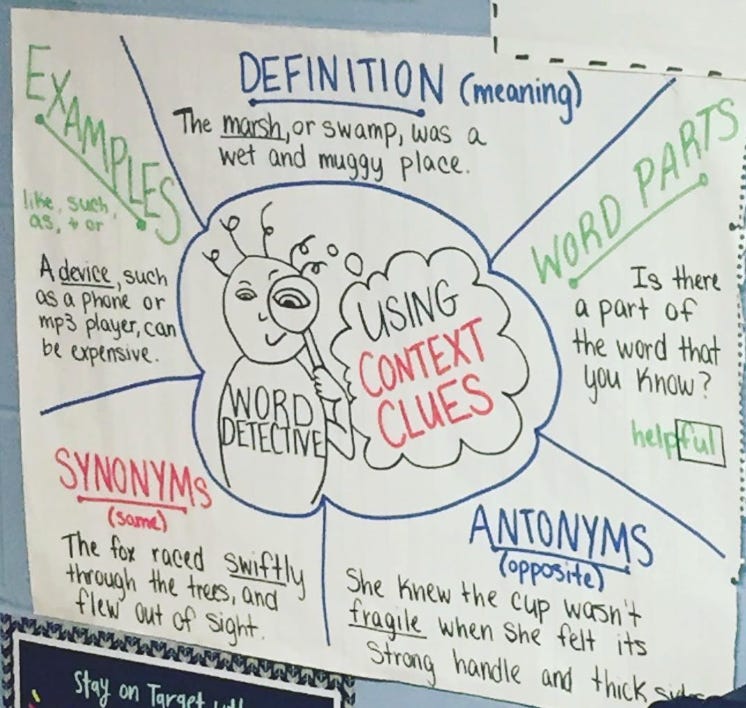 DEFINITION (meaning)
The marsh, or swamp, was a
wet and muggy place.
EXAMPLES
like, such
as, + or
A device, such
as a phone or
mp3 player, can
be expensive.
WORD PARTS
Is there
a part of
the word that
you know?
helpful
USING
CONTEXT
CLUES
WORD
DETECTIVE
SYNONYMS
(same)
The fox raced swiftly
through the trees, and
flew out of sight.
ANTONYMS
(opposite)
She knew the cup wasn't
fragile when she felt its
strong handle and thick
Stay on Target